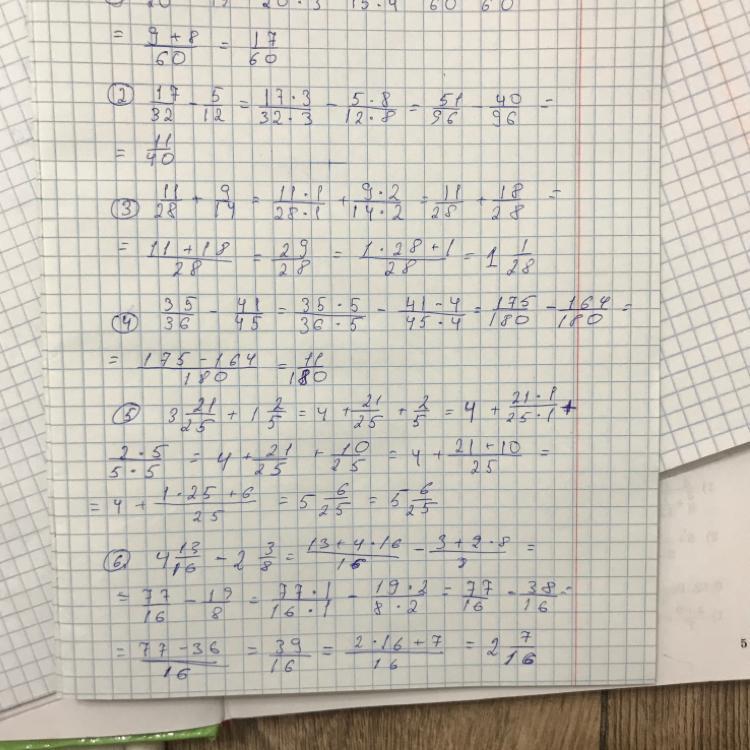 = (9 + 8)/60 = 17/60
② 17/32 - 5/12 = (17 · 3)/(32 · 3) - (5 · 8)/(12 · 8) = 51/96 - 40/96 =
= 11/40
③ 11/28 + 9/14 = (11 · 1)/(28 · 1) + (9 · 2)/(14 · 2) = 11/28 + 18/28 =
= (11 + 18)/28 = 29/28 = (1 · 28 + 1)/28 = 1 1/28
④ 35/36 - 41/45 = (35 · 5)/(36 · 5) - (41 - 4)/(45 · 4) = 175/180 - 164/180 =
= (175 - 164)/180 = 11/180
⑤ 3 21/25 + 1 2/5 = 4 + 21/25 + 2/5 = 4 + (21 · 1)/(25 · 1) +
(2 · 5)/(5 · 5) = 4 + 21/25 + 10/25 = 4 + (21 + 10)/25 =
= 4 + (1 · 25 + 6)/25 = 5 6/25 = 5 6/25
⑥ 4 13/16 - 2 3/8 = (13 + 4 · 16)/16 - (3 + 2 · 8)/8 =
= 77/16 - 19/8 = (77 · 1)/(16 · 1) - (19 · 2)/(8 · 2) = 77/16 - 38/16 =
= (77 - 36)/16 = 39/16 = (2 · 16 + 7)/16 = 2 7/16
5